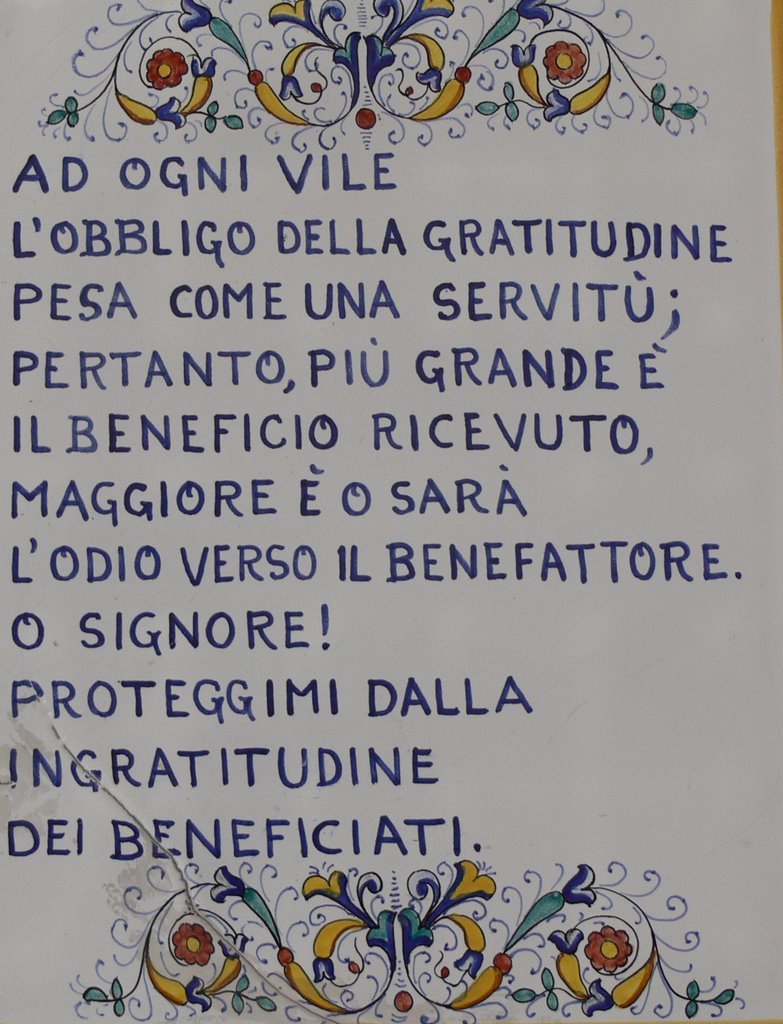 AD OGNI VILE
L'OBBLIGO DELLA GRATITUDINE
PESA COME UNA SERVITÙ;
PERTANTO, PIÙ GRANDE È
IL BENEFICIO RICEVUTO,
MAGGIORE È O SARÀ
L'ODIO VERSO IL BENEFATTORE.
O SIGNORE!
PROTEGGIMI DALLA
INGRATITUDINE
DEI BENEFICIATI.